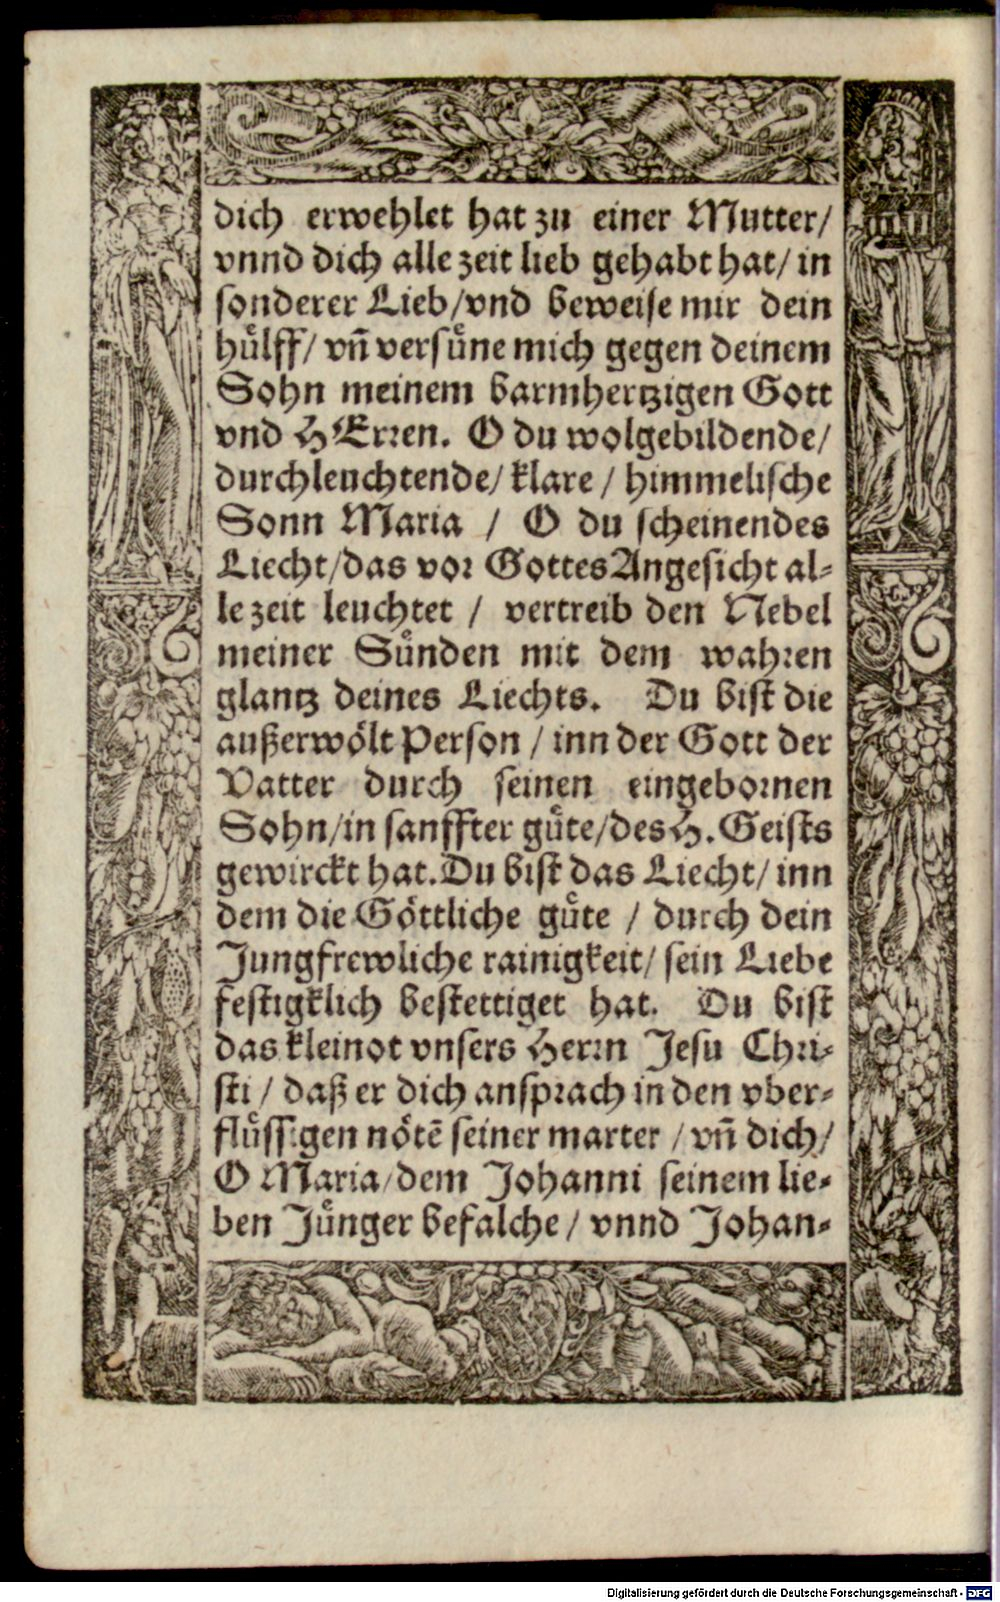 dich erwehlet hat zu einer Mutter/
vnnd dich alle zeit lieb gehabt hat/ in
sonderer Lieb/vnd beweise mir dein
huͤlff/ vñ versuͤne mich gegen deinem
Sohn meinem barmhertzigen Gott
vnd HErren. O du wolgebildende/
durchleuchtende/ klare / himmelische
Sonn Maria / O du scheinendes
Liecht/das vor Gottes Angesicht al-
le zeit leuchtet / vertreib den Nebel
meiner Suͤnden mit dem wahren
glantz deines Liechts. Du bist die
außerwoͤlt Person / inn der Gott der
Vatter durch seinen eingebornen
Sohn/in sanffter guͤte/des H. Geists
gewirckt hat. Du bist das Liecht/ inn
dem die Goͤttliche guͤte / durch dein
Jungfrewliche rainigkeit/ sein Liebe
festigklich bestettiget hat. Du bist
das kleinot vnsers Herrn Jesu Chri-
sti / daß er dich ansprach in den vber-
fluͤssigen noͤtē seiner marter / vñ dich/
O Maria/dem Johanni seinem lie-
ben Juͤnger befalche / vnnd Johan-
Digitalisierung gefördert durch die Deutsche Forschungsgemeinschaft - DFG